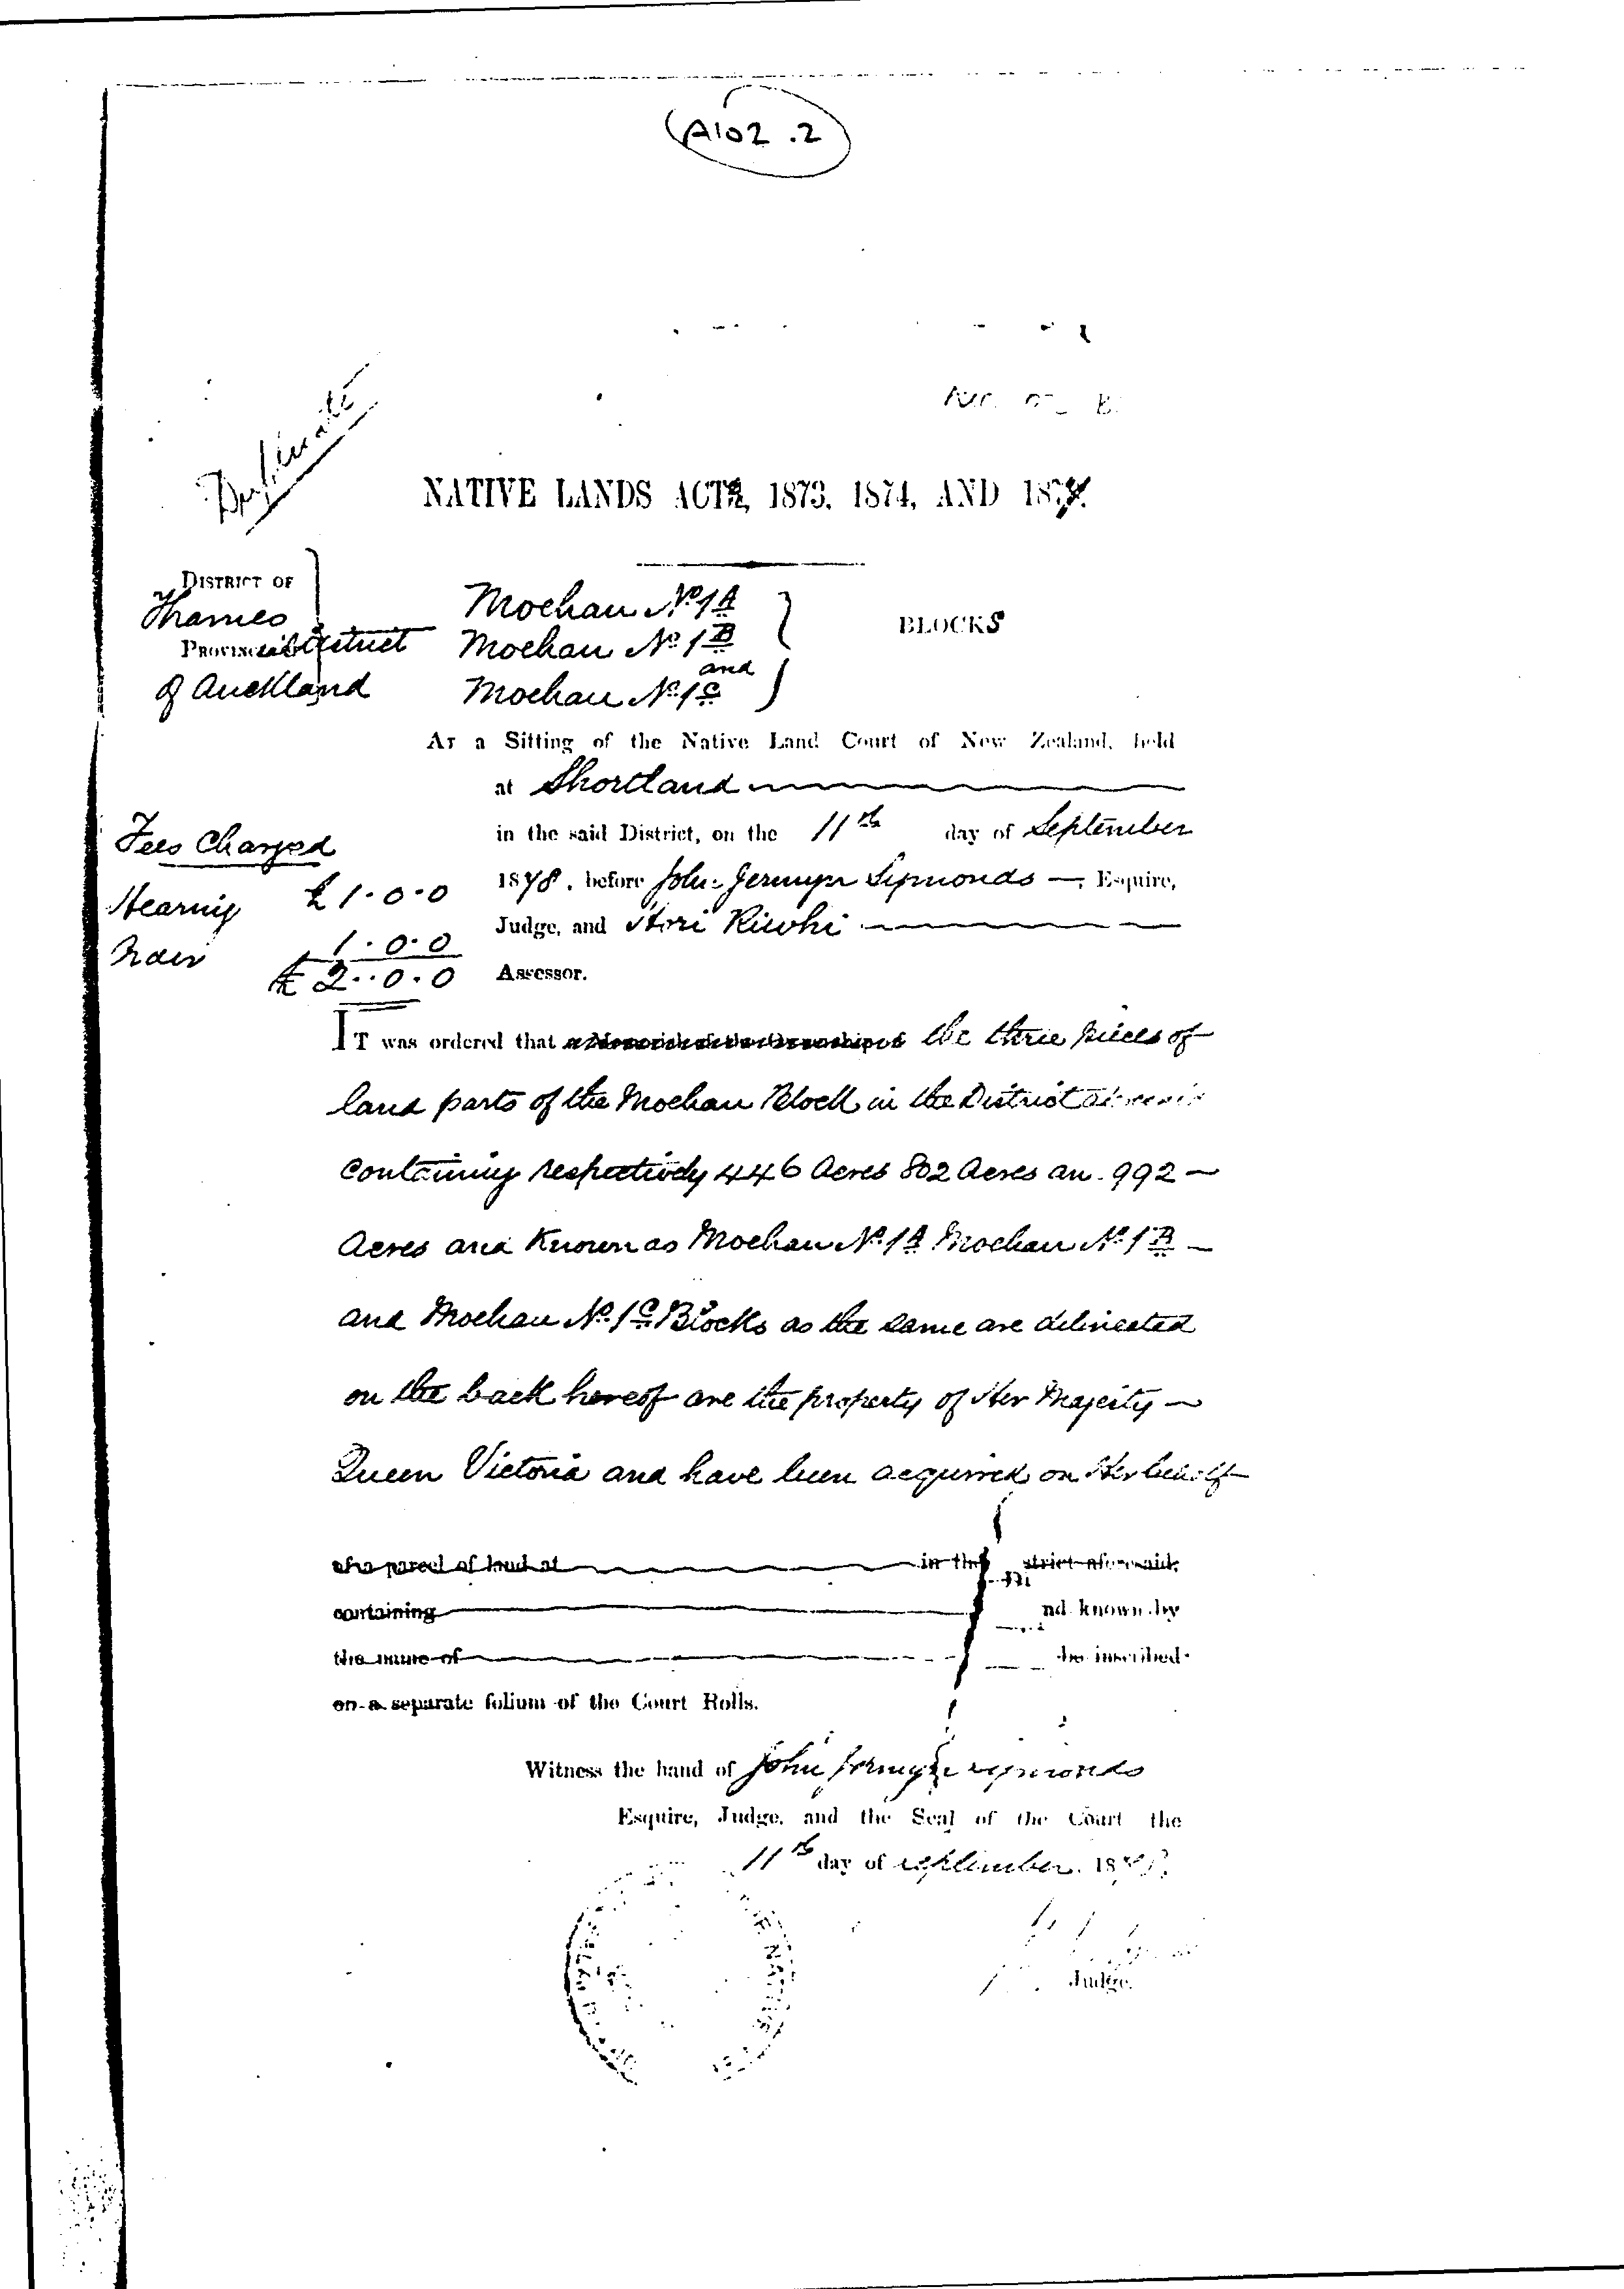 A102.2
Duplicate
NATIVE LANDS ACTS, 1873, 1874, AND 1877.
DISTRICT OF
Thames
Provincial District
of Auckland
Moehau No 1A
Moehau No 1B
and
Moehau No 1C
BLOCKS
AT a Sitting of the Native Land Court of New Zealand, held
at Shortland
in the said District, on the 11th day of September
1878, before John Jermyn Symonds —, Esquire,
Judge, and Hori Riwhi
Assessor.
Fees Charged
Hearing £1.0.0
1.0.0
£2.0.0
IT was ordered that the three pieces of
land parts of the Moehau Block in the District aforesaid
containing respectively 446 Acres 802 Acres and 992 —
Acres and known as Moehau No 1A Moehau No 1B —
and Moehau No 1C Blocks as the same are delineated
on the back hereof are the property of Her Majesty —
Queen Victoria and have been acquired on Her behalf
the parcel of land at in the strict aforesaid,
containing nd known by
the name of be inscribed
on a separate folium of the Court Rolls.
Witness the hand of John Jermyn Symonds
Esquire, Judge, and the Seal of the Court the
11th day of September, 1878.
Judge.